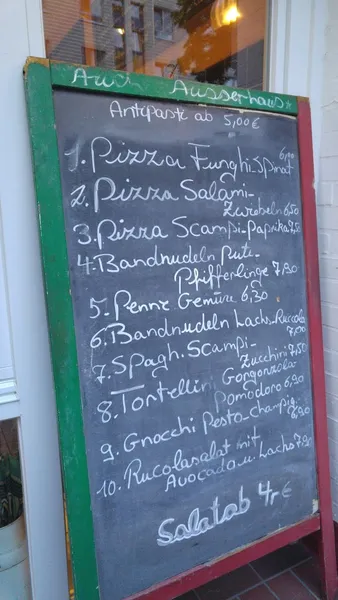 Auch Ausserhaus
Antipasti ab 5,00€
1. Pizza Funghi Spinat 6,00
2. Pizza Salami-
Zwiebeln 6,50
3. Pizza Scampi-Paprika 7,50
4. Bandnudeln Pute-
Pfifferlinge 7,90
5. Penne Gemüse 6,30
6. Bandnudeln Lachs-Ruccola
7,00
7. Spagh. Scampi-
Zucchini 7,50
8. Tortellini Gorgonzola
Pomodoro 6,90
9. Gnocchi Pesto-Champig.
6,90
10. Rucolasalat mit
Avocado u. Lachs 7,90
Salat ab 4,-€